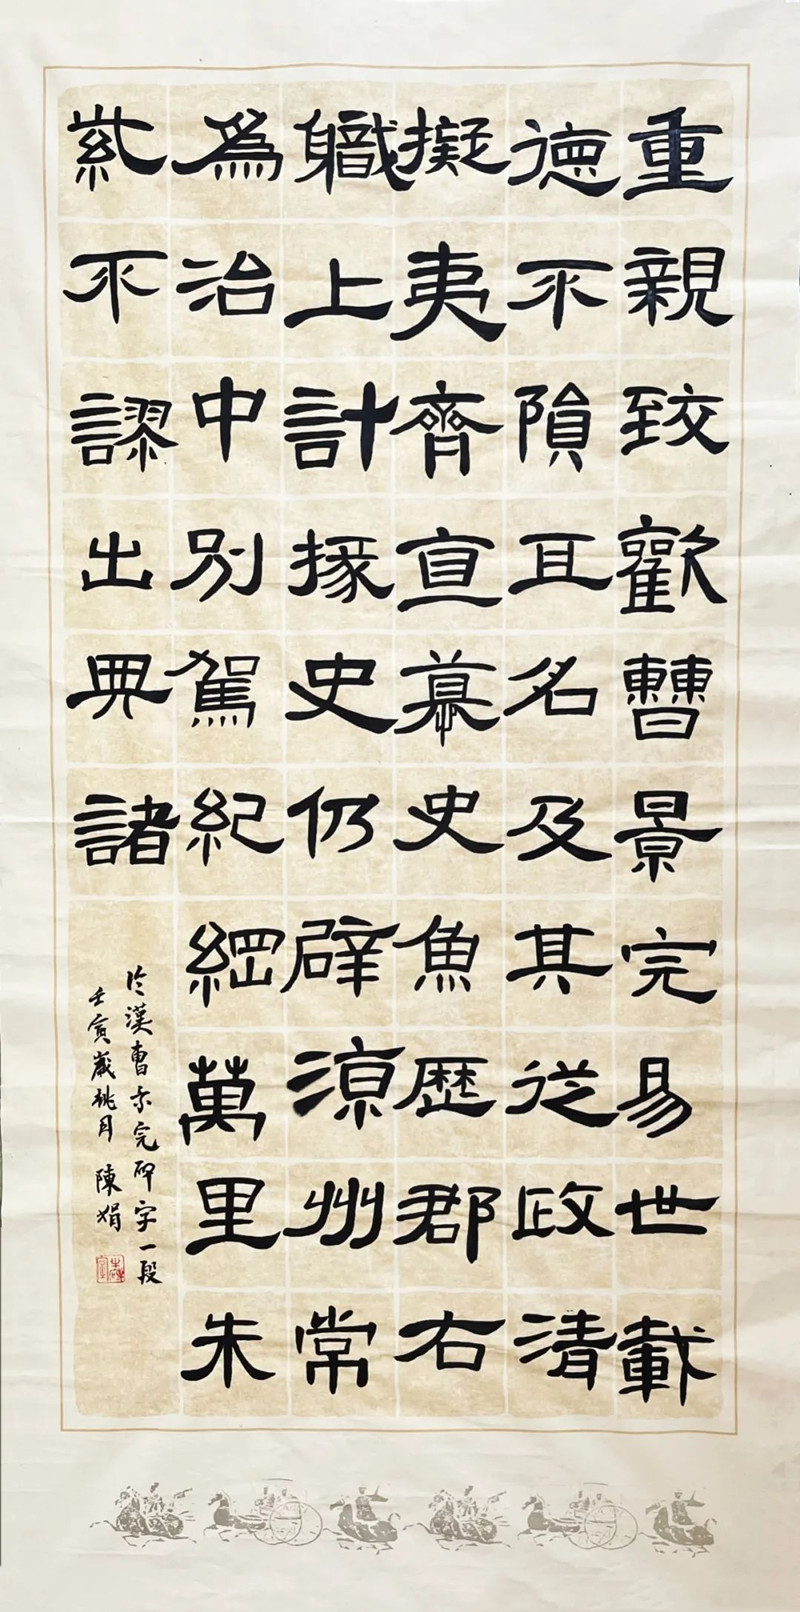 重親致歡曹景完易世載
德不隕其名及其從政清
擬夷齊直慕史魚歷郡右
職上計掾史仍辟涼州常
為治中別駕紀綱萬里朱
紫不謬出典諸
臨漢曹景完碑字一段
壬寅歲桃月 陳娟